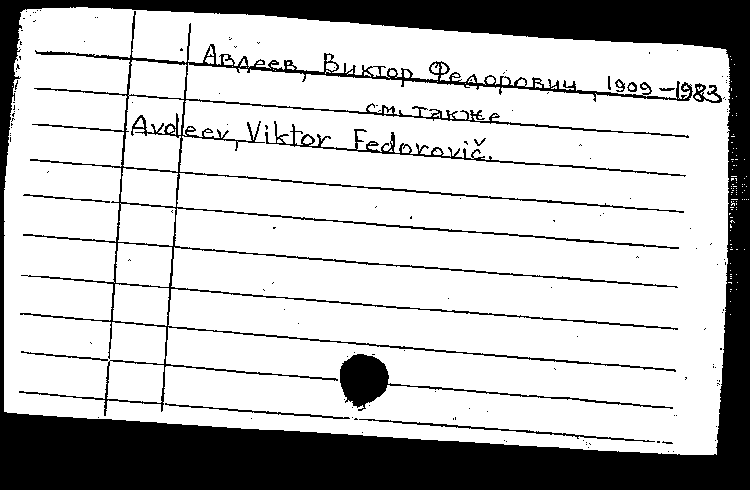 Авдеев, Виктор Федорович, 1909-1983
см. также
Avdeev, Viktor Fedorovič.